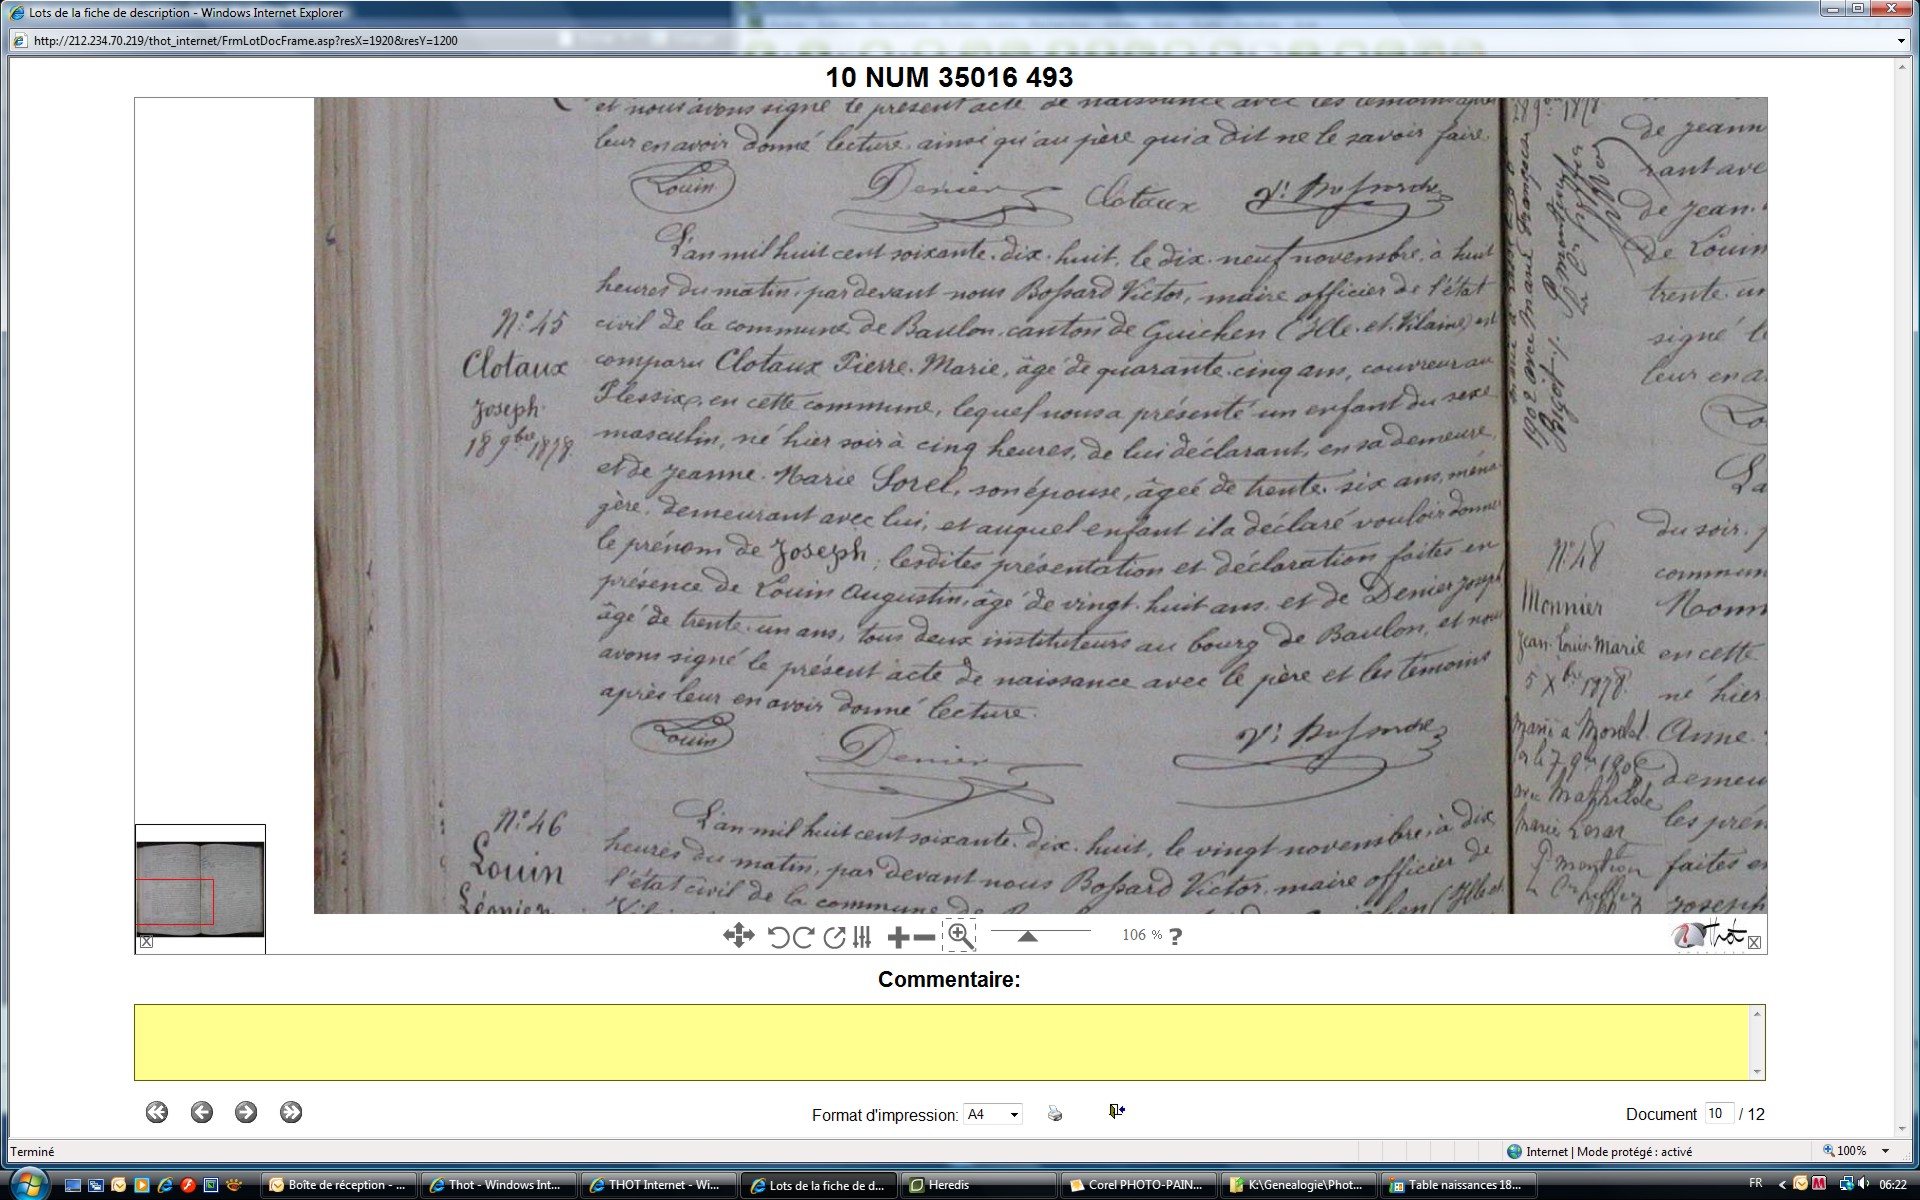 Lots de la fiche de description - Windows Internet Explorer
http://212.234.70.219/thot_internet/FrmLotDocFrame.asp?resX=1920&resY=1200
10 NUM 35016 493
et nous avons signé le présent acte de naissance avec les témoins après
leur en avoir donné lecture, ainsi qu'au père qui a dit ne le savoir faire.
Louin Denier Clotaux
L'an mil huit cent soixante-dix-huit, le dix-neuf novembre, à huit
heures du matin, par devant nous Bossard Victor, maire officier de l'état
N° 45
civil de la commune de Baulon, canton de Guichen (Ille-et-Vilaine) est
Clotaux
comparu Clotaux Pierre-Marie, âgé de quarante-cinq ans, couvreur au
Joseph
Plessix, en cette commune, lequel nous a présenté un enfant du sexe
18 9bre 1878.
masculin, né hier soir à cinq heures, de lui déclarant, en sa demeure,
et de Jeanne-Marie Sorel, son épouse, âgée de trente-six ans, ména-
gère, demeurant avec lui, et auquel enfant il a déclaré vouloir donner
le prénom de Joseph; lesdites présentation et déclaration faites en
présence de Louin Augustin, âgé de vingt-huit ans et de Denier Joseph
âgé de trente-un ans, tous deux instituteurs au bourg de Baulon, et nous
avons signé le présent acte de naissance avec le père et les témoins
après leur en avoir donné lecture.
Louin Denier
N° 46
L'an mil huit cent soixante-dix-huit, le vingt novembre, à dix
Louin
heures du matin, par devant nous Bossard Victor, maire officier de
l'état civil de la commune de
1902 avec Marie Françoise
Bigot
de Jeann
rant ave
de Jean
de Louin
trente-un
signé l
leur en a
Lo
La
du soir, p
N° 48
commun
Monnier
Monn
Jean-Louis-Marie
en cette
5 Xbre 1878.
né hier
Anne
demeu
les prén
faites en
Joseph
106 % ?
Thot
Commentaire:
Format d'impression: A4
Document 10 / 12
Terminé
Internet | Mode protégé : activé
100%
Boîte de réception - ...
Thot - Windows Int...
THOT Internet - Wi...
Lots de la fiche de d...
Heredis
Corel PHOTO-PAIN...
K:\Genealogie\Phot...
Table naissances 18...
FR
06:22